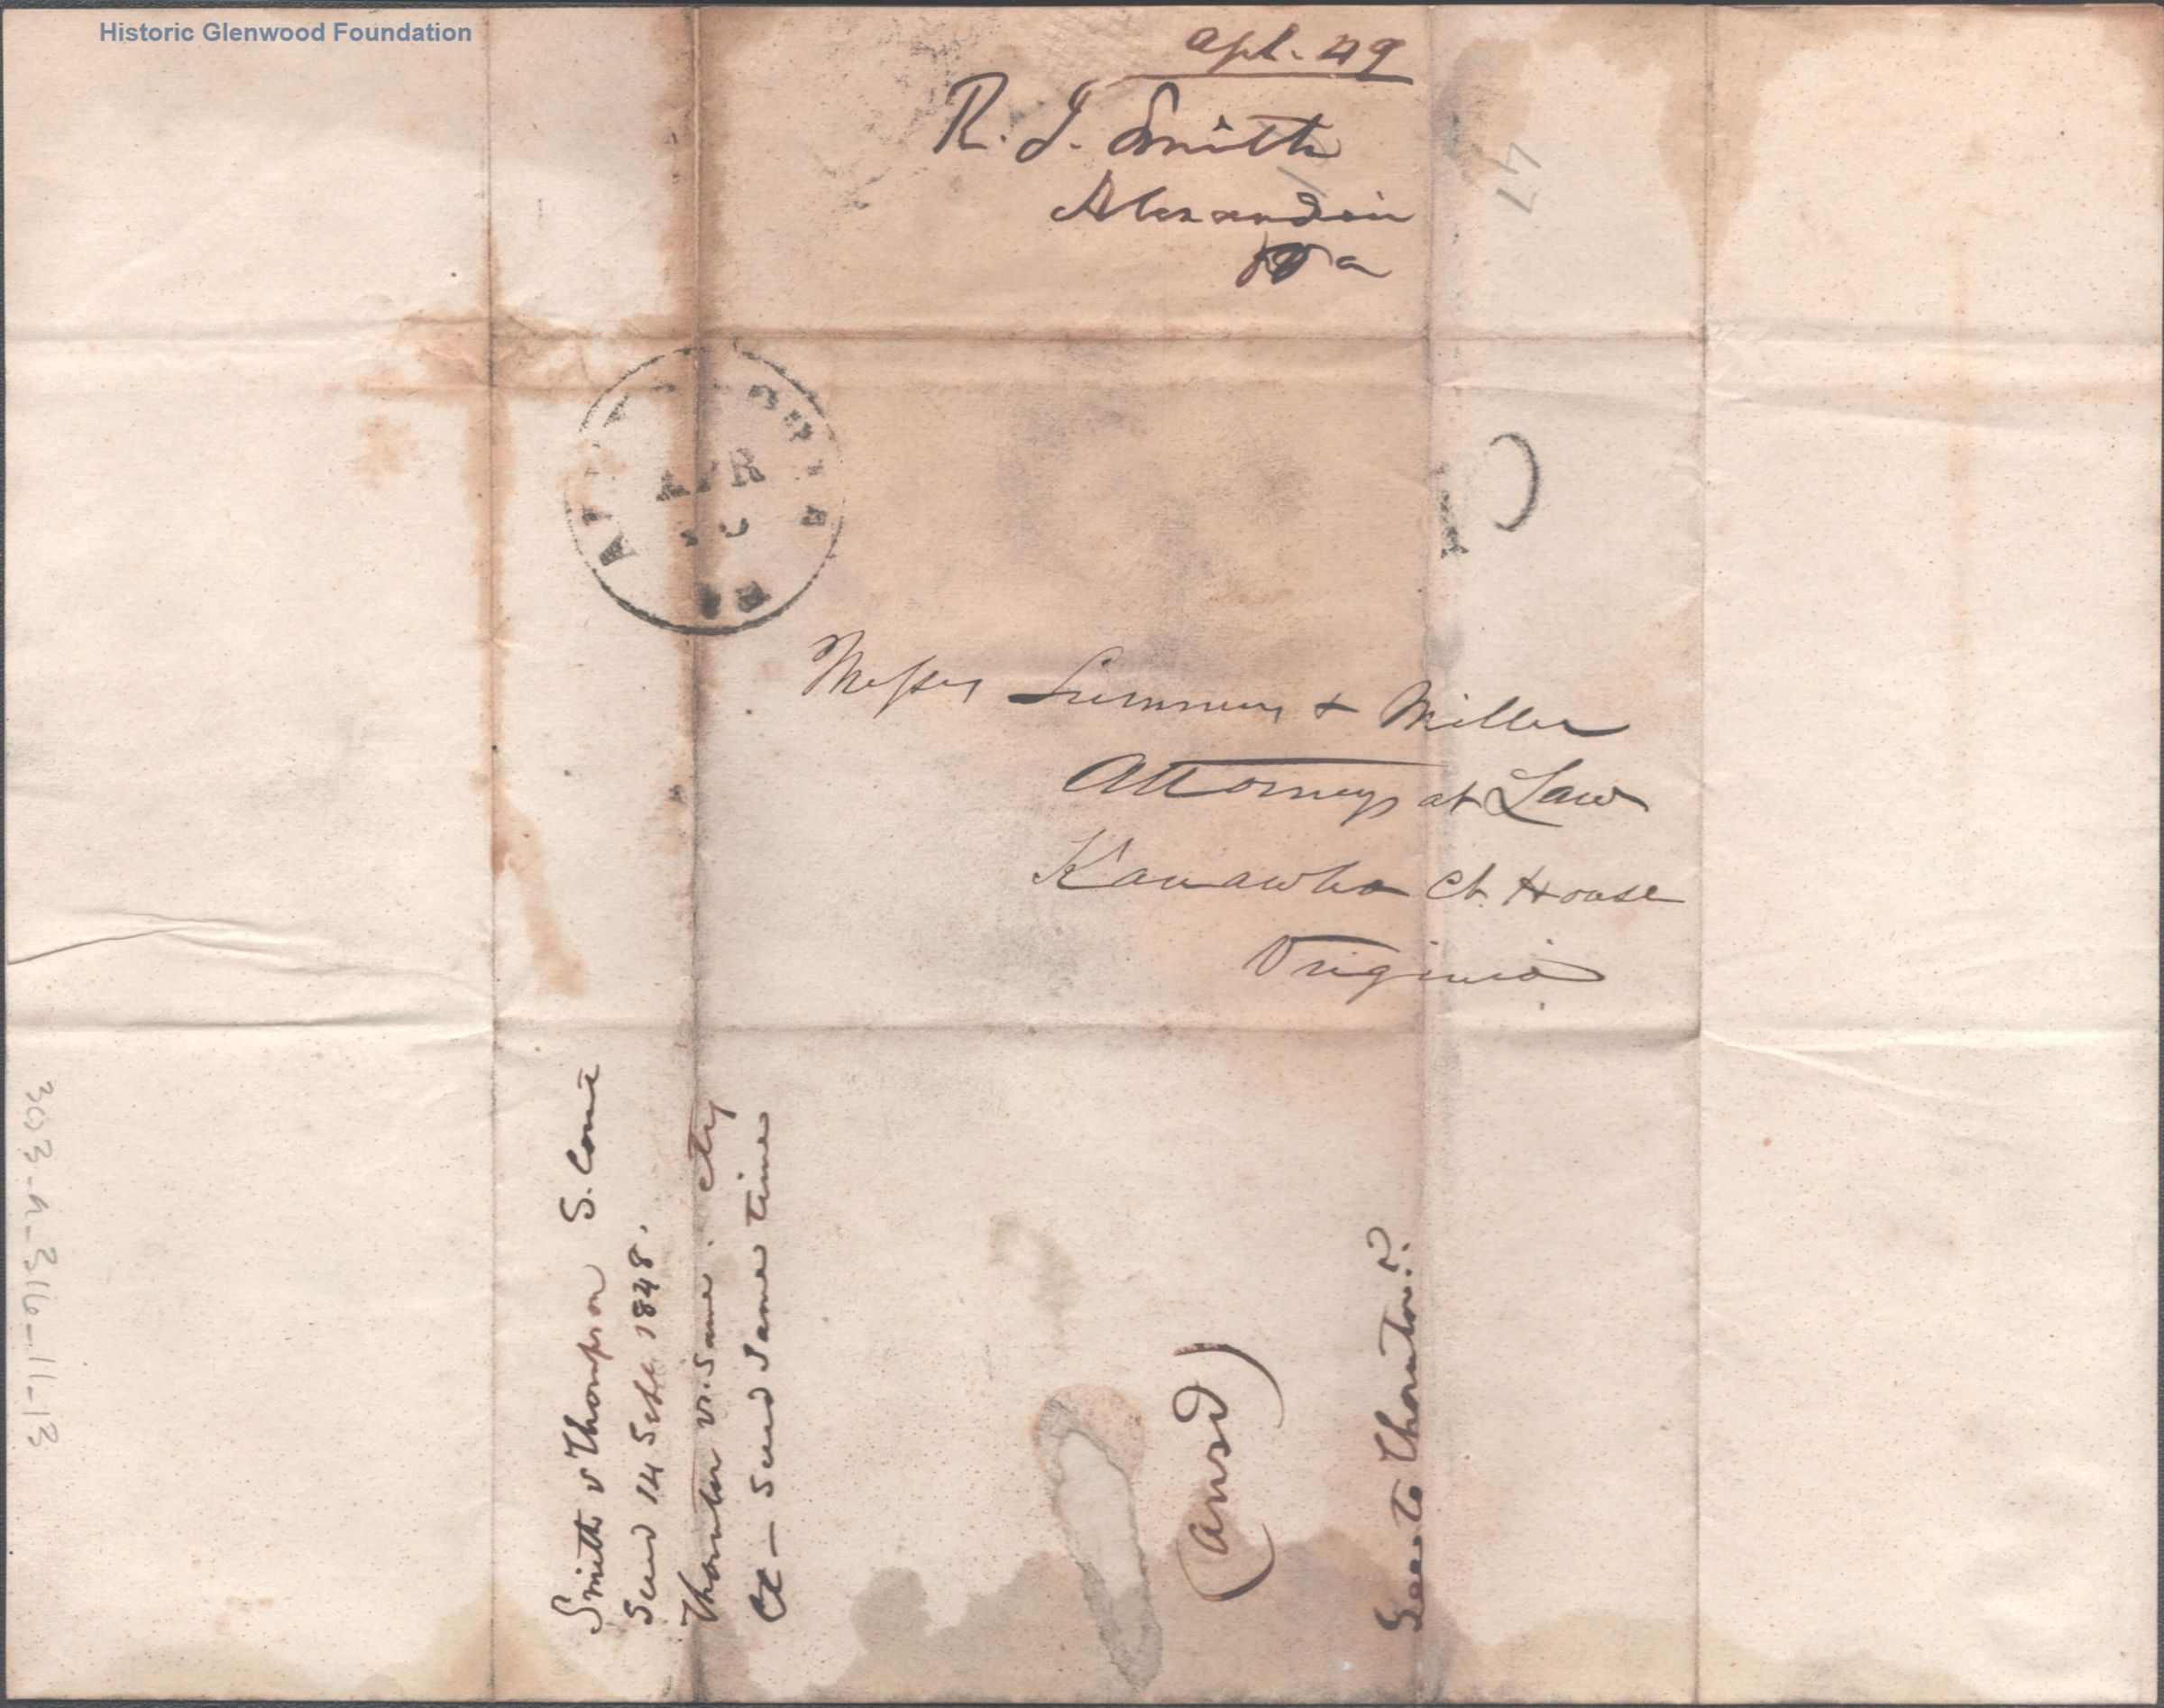 Historic Glenwood Foundation
Apl. 49
R. J. Smith
Alexandria
Va
47
APR
10
Messrs Summers & Miller
Attorneys at Law
Kanawha Ct. House
Virginia
Smith v Thompson S. Court
Sued 14 Sept 1848.
Thornton vs. Same. Cty
Ct - Sued Same time
(ansd)
to Thornton?
3003-A-316-11-13